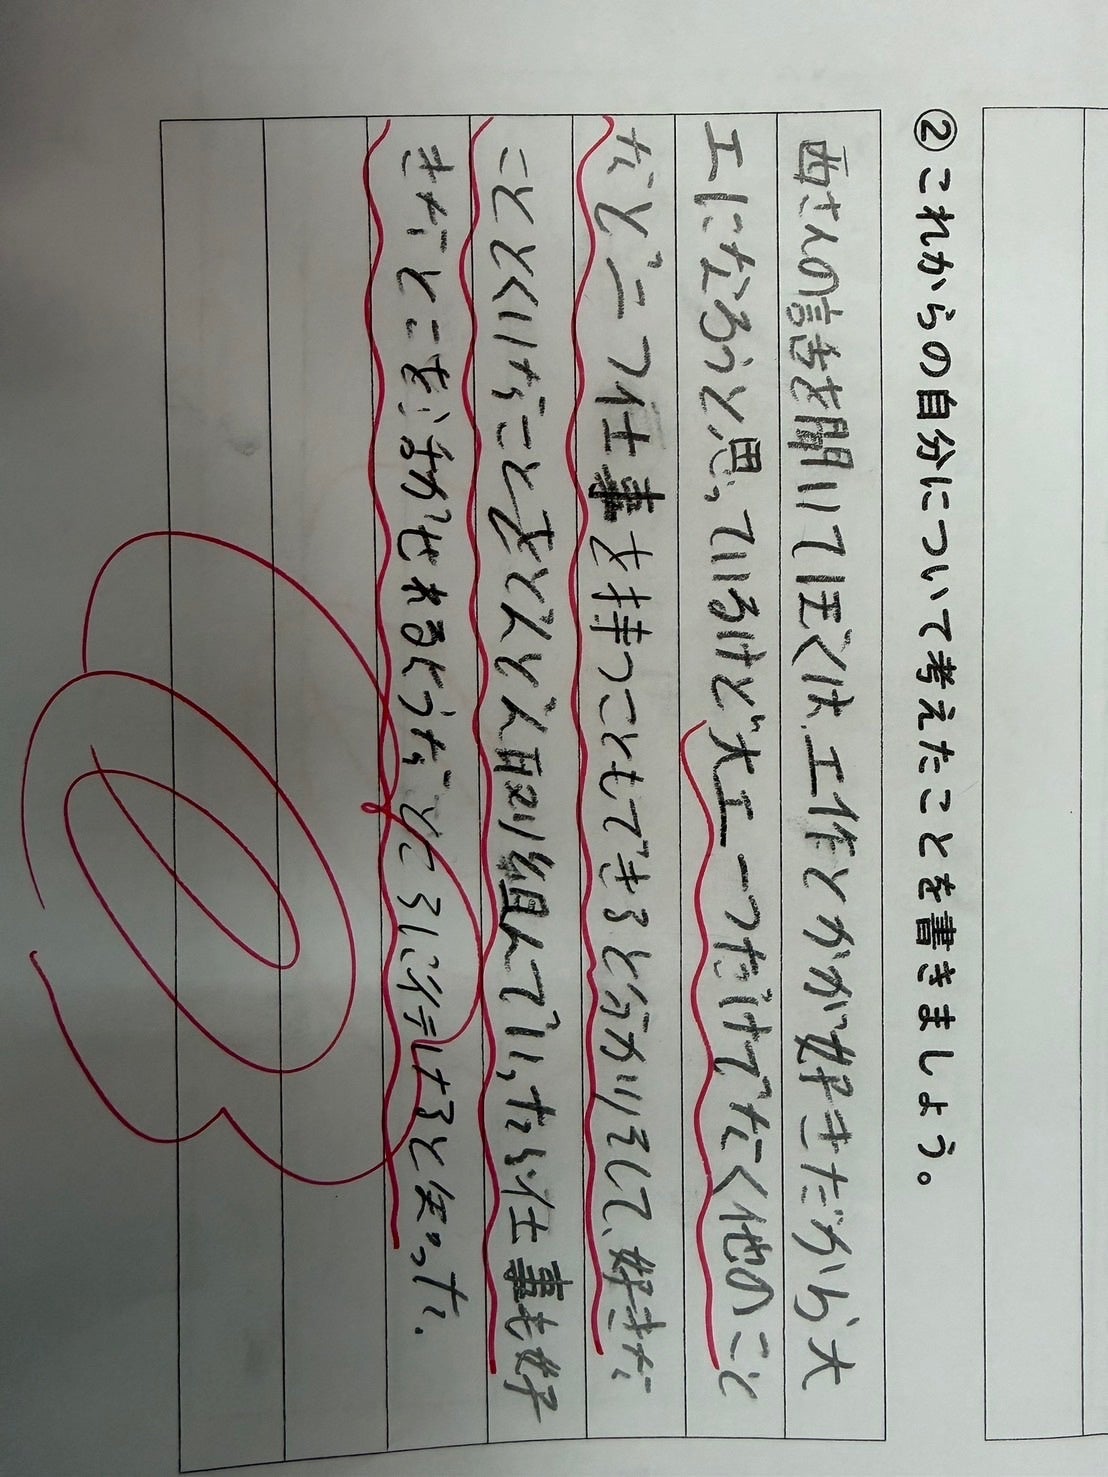 ②これからの自分について考えたことを書きましょう。
西さんの話を聞いてぼくは、工作とかが好きだから大
工になろうと思っているけど大工一つだけでなく他のこと
など二つ仕事を持つこともできると分かりそして、好きな
こととくいなことをどんどん取り組んでいったら仕事も好
きなとこを活かせれるようなところに行けると知った.